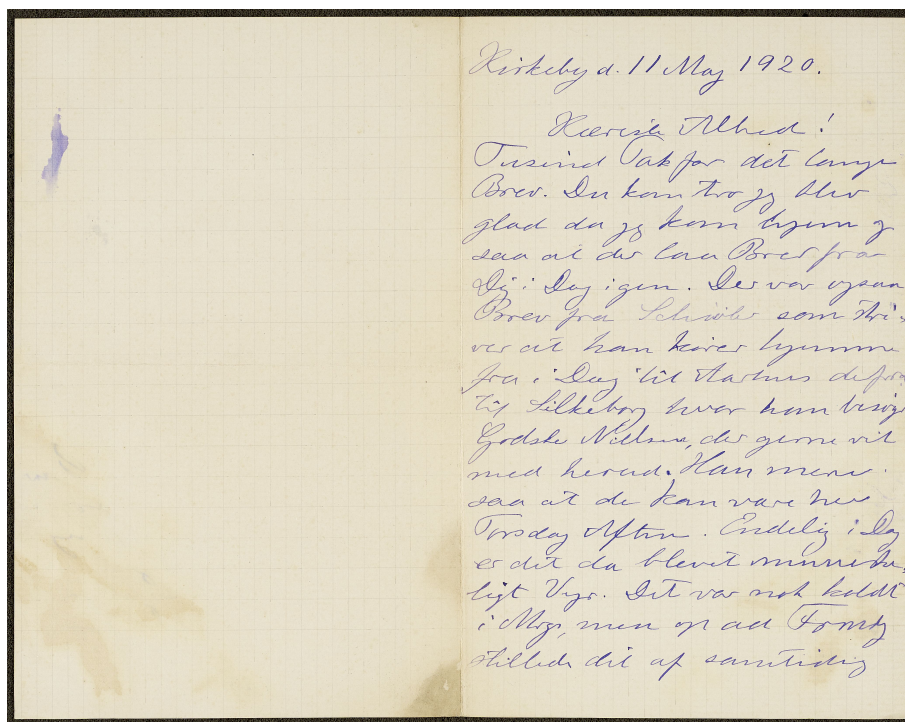 Kirkeby d. 11 Maj 1920.
Kæreste Alhed!
Tusind Tak for det lange
Brev. Du kan tro jeg blev
glad da jeg kom hjem og
saa at der laa Brev fra
Dig i Dag igen. Der var ogsaa
Brev fra Schiøler som skri-
ver at han kører hjemme
fra i Dag til Aarhus derfra
til Silkeborg hvor han besøger
Godske Nielsen, der gerne vil
med herud. Han mener
saa at de kan være her
Torsdag Aften. Endelig i Dag
er det da blevet menneske-
ligt Vejr. Det var nok koldt
i Mrgs, men op ad Formdg
stillede det af samtidig